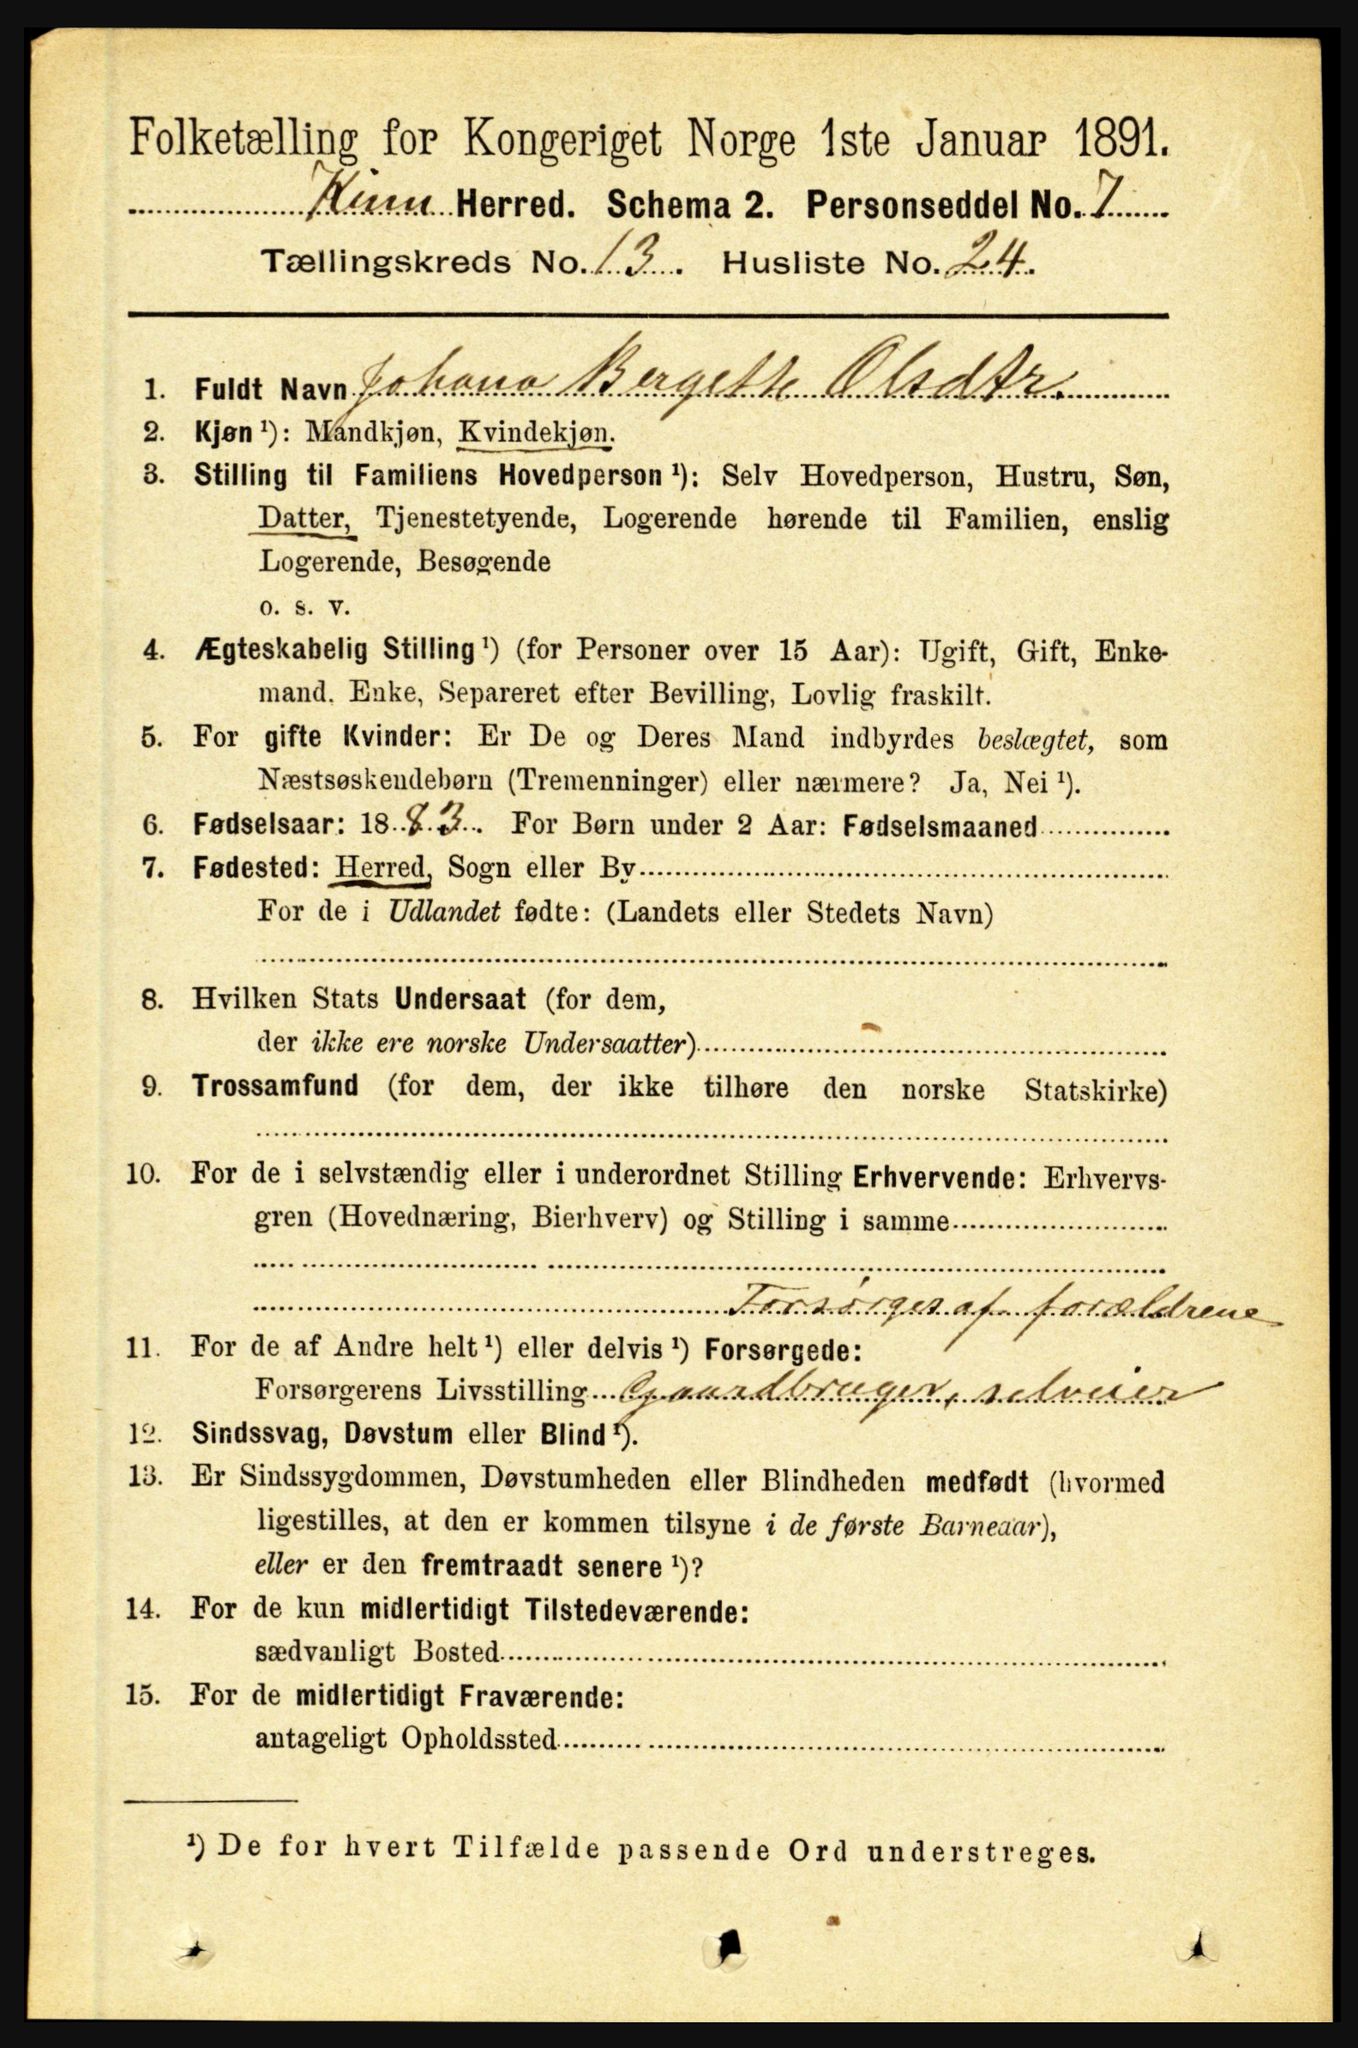 Folketælling for Kongeriget Norge 1ste Januar 1891.
Kinn Herred. Schema 2. Personseddel No. 7
Tællingskreds No. 13. Husliste No. 24.
1. Fuldt Navn Johana Bergette Olsdtr.
2. Kjøn ¹): Mandkjøn, Kvindekjøn.
3. Stilling til Familiens Hovedperson ¹): Selv Hovedperson, Hustru, Søn,
Datter, Tjenestetyende, Logerende hørende til Familien, enslig
Logerende, Besøgende
o. s. v.
4. Ægteskabelig Stilling ¹) (for Personer over 15 Aar): Ugift, Gift, Enke-
mand, Enke, Separeret efter Bevilling, Lovlig fraskilt.
5. For gifte Kvinder: Er De og Deres Mand indbyrdes beslægtet, som
Næstsøskendebørn (Tremenninger) eller nærmere? Ja, Nei ¹).
6. Fødselsaar: 1883. For Børn under 2 Aar: Fødselsmaaned
7. Fødested: Herred, Sogn eller By
For de i Udlandet fødte: (Landets eller Stedets Navn)
8. Hvilken Stats Undersaat (for dem,
der ikke ere norske Undersaatter)
9. Trossamfund (for dem, der ikke tilhøre den norske Statskirke)
10. For de i selvstændig eller i underordnet Stilling Erhvervende: Erhvervs-
gren (Hovednæring, Bierhverv) og Stilling i samme
Forsørges af forældrene
11. For de af Andre helt ¹) eller delvis ¹) Forsørgede:
Forsørgerens Livsstilling Gaardbruger, selveier
12. Sindssvag, Døvstum eller Blind ¹).
13. Er Sindssygdommen, Døvstumheden eller Blindheden medfødt (hvormed
ligestilles, at den er kommen tilsyne i de første Barneaar),
eller er den fremtraadt senere ¹)?
14. For de kun midlertidigt Tilstedeværende:
sædvanligt Bosted
15. For de midlertidigt Fraværende:
antageligt Opholdssted
¹) De for hvert Tilfælde passende Ord understreges.